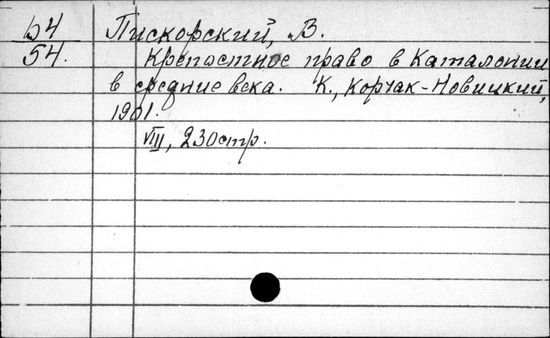 Ь4 Пискорский, В.
54. Крепостное право в Каталонии
в средние века. К., Корчак-Новицкий,
1901.
VIII, 230стр.